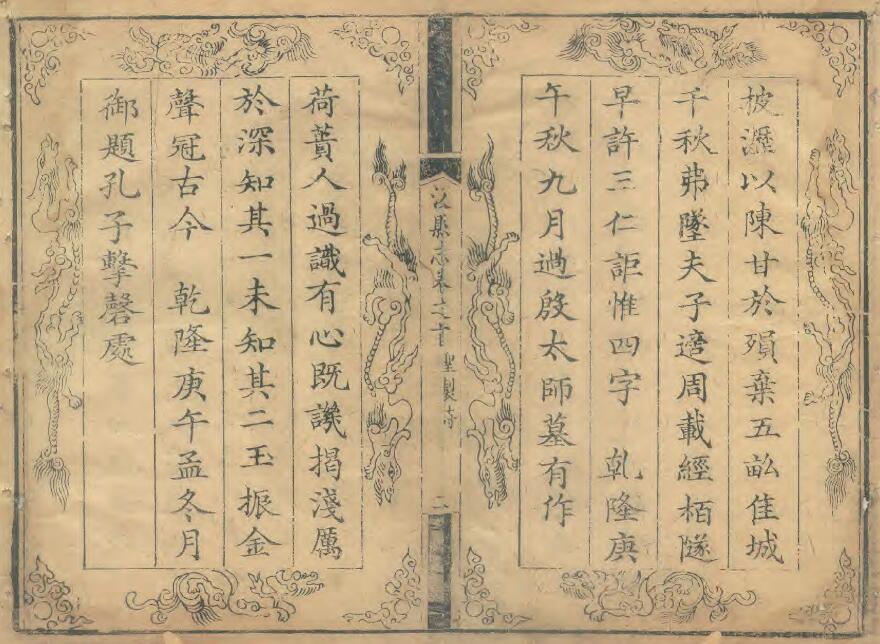 披瀝以陳甘於殞棄五畝佳城
千秋弗墜夫子適周載經栢隧
早許三仁詎惟四字 乹隆庚
午秋九月過殷太師墓有作
汲縣志卷之首 聖製詩 二
荷蕢人過識有心既譏揭淺厲
於深知其一未知其二玉振金
聲冠古今 乾隆庚午孟冬月
御題孔子擊磬處